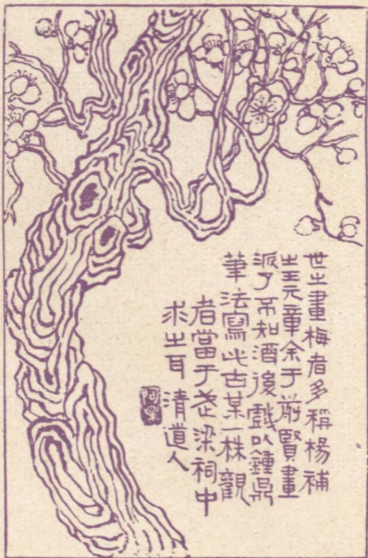 世之畫梅者多稱楊補
之王元章余于前賢畫
派了不知酒後戲以鍾鼎
筆法寫此古某一株觀
者當于武梁祠中
求之耳 清道人